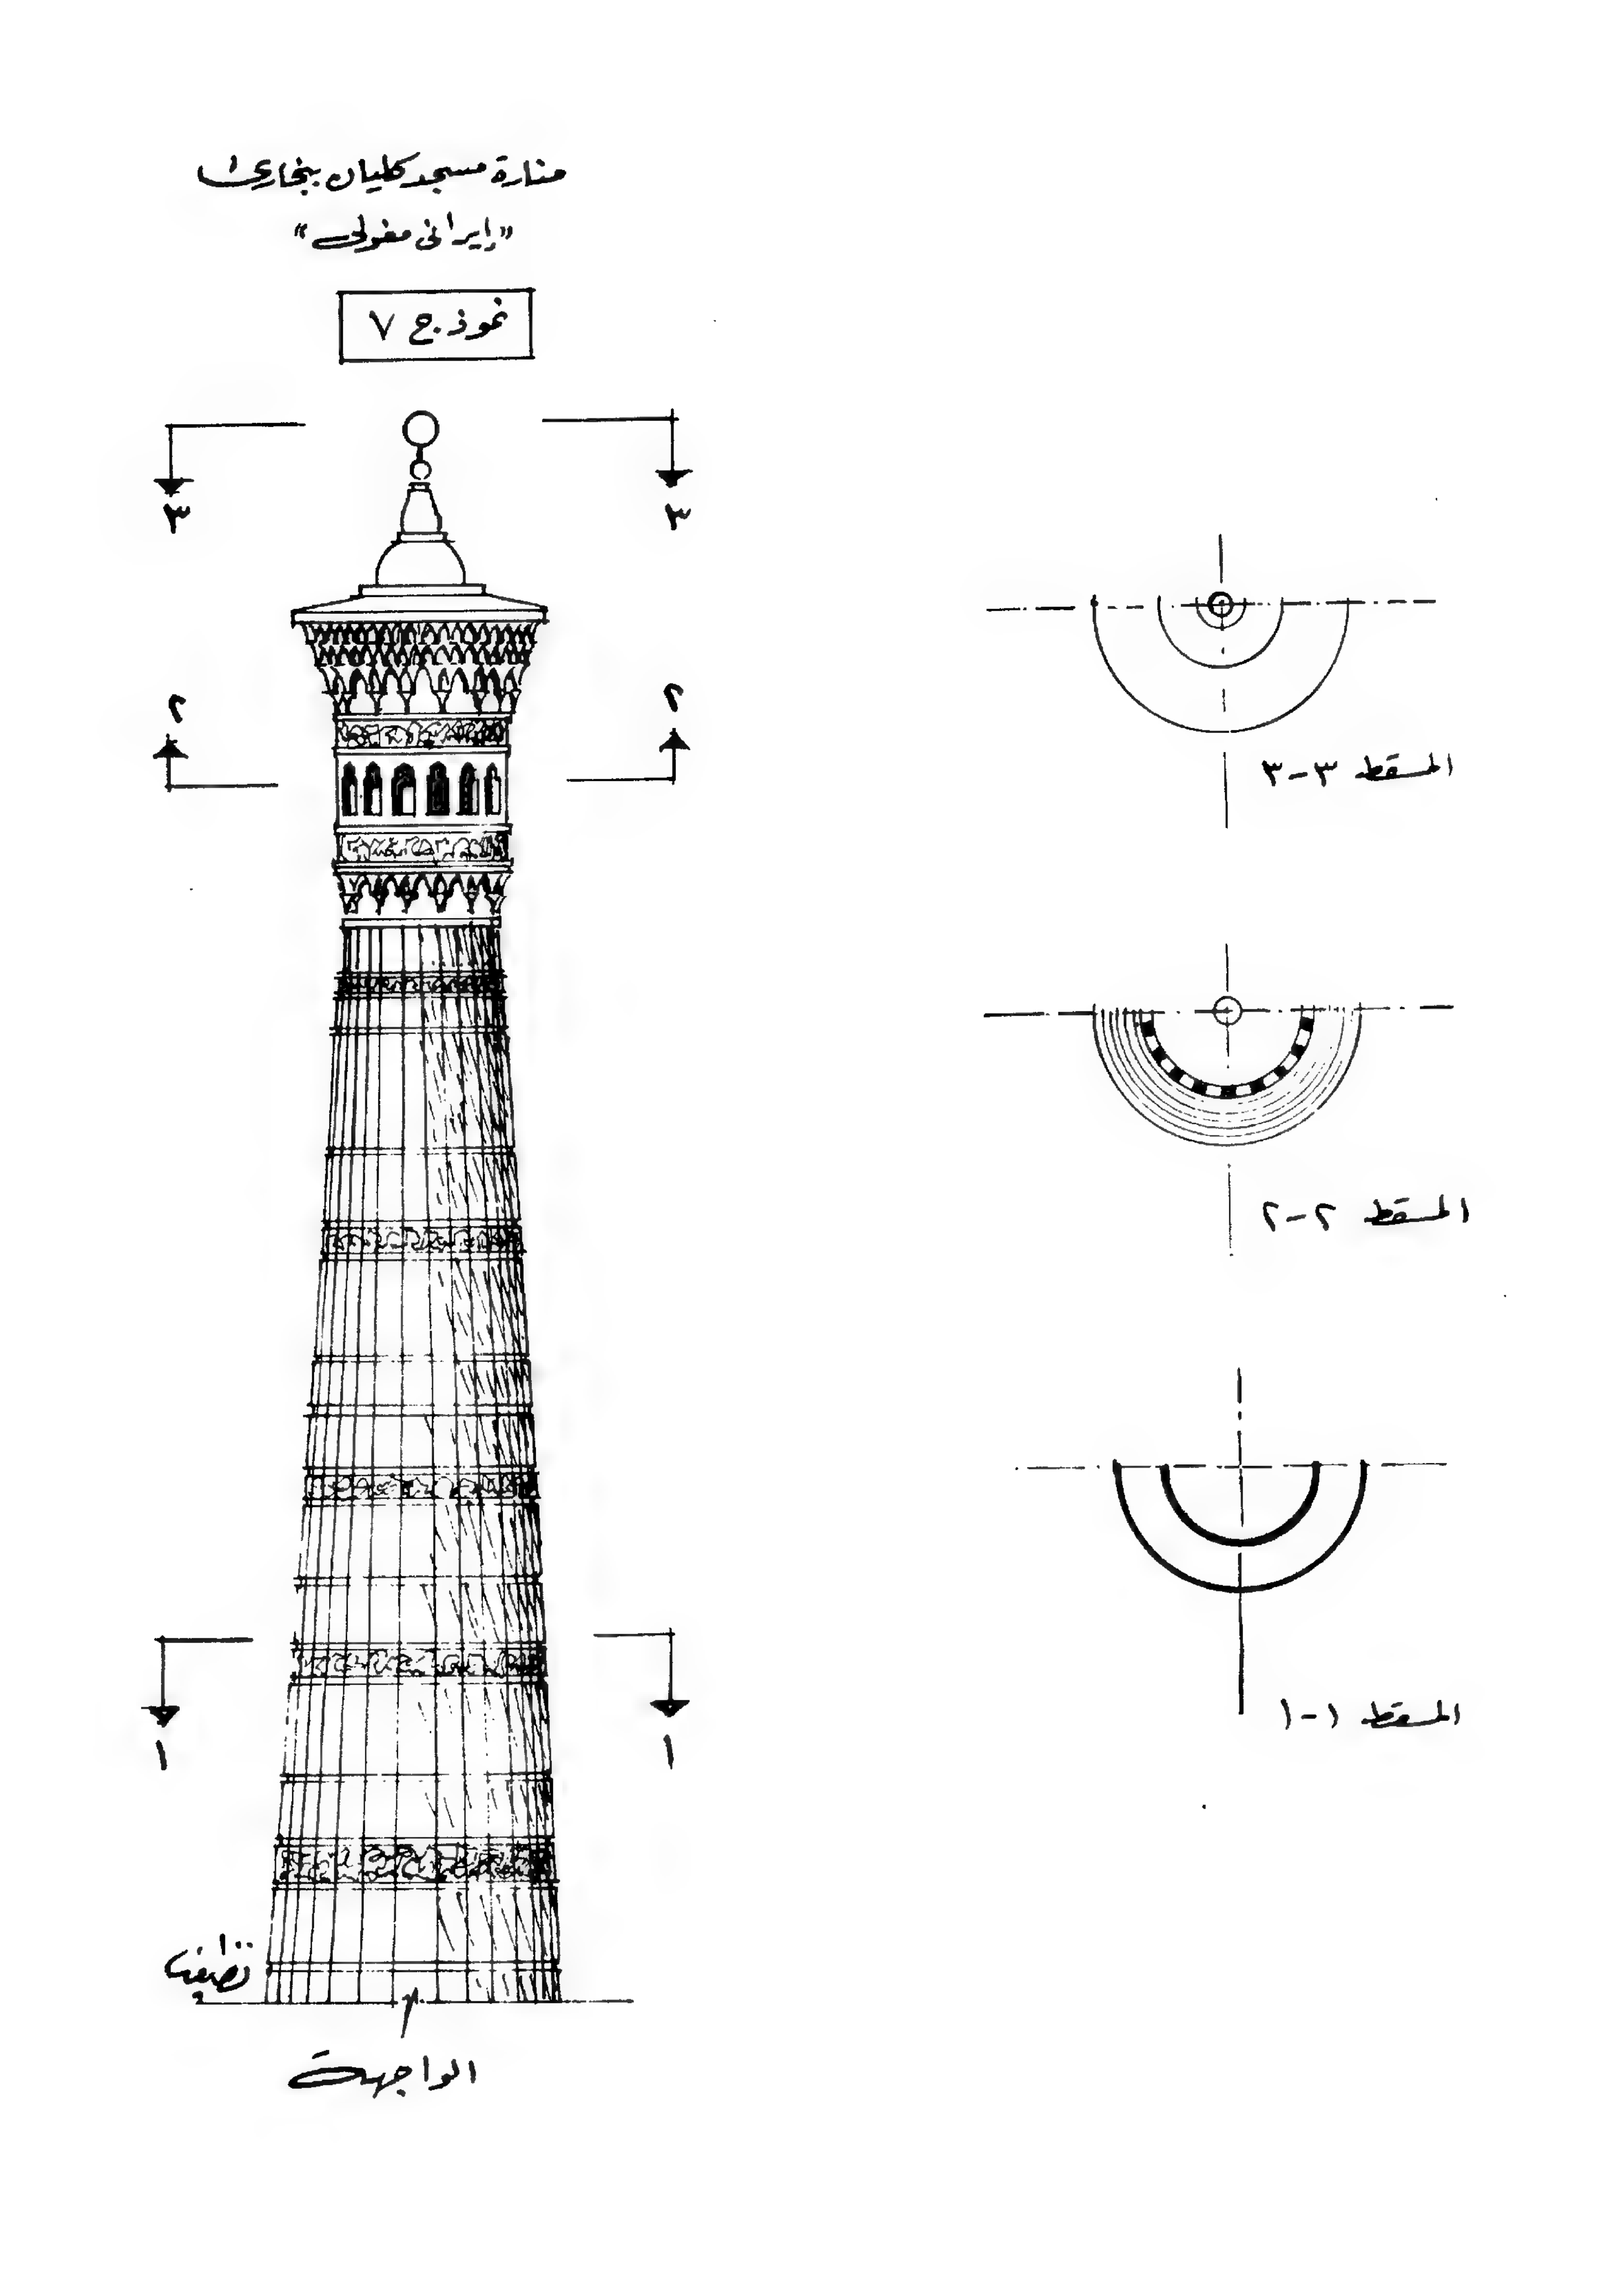 منارة مسجد كليان ببخارى
"إيراني مغولي"
نموذج ٧
٣
٣
٢
٢
١
١
الواجهة
المسقط ٣-٣
المسقط ٢-٢
المسقط ١-١